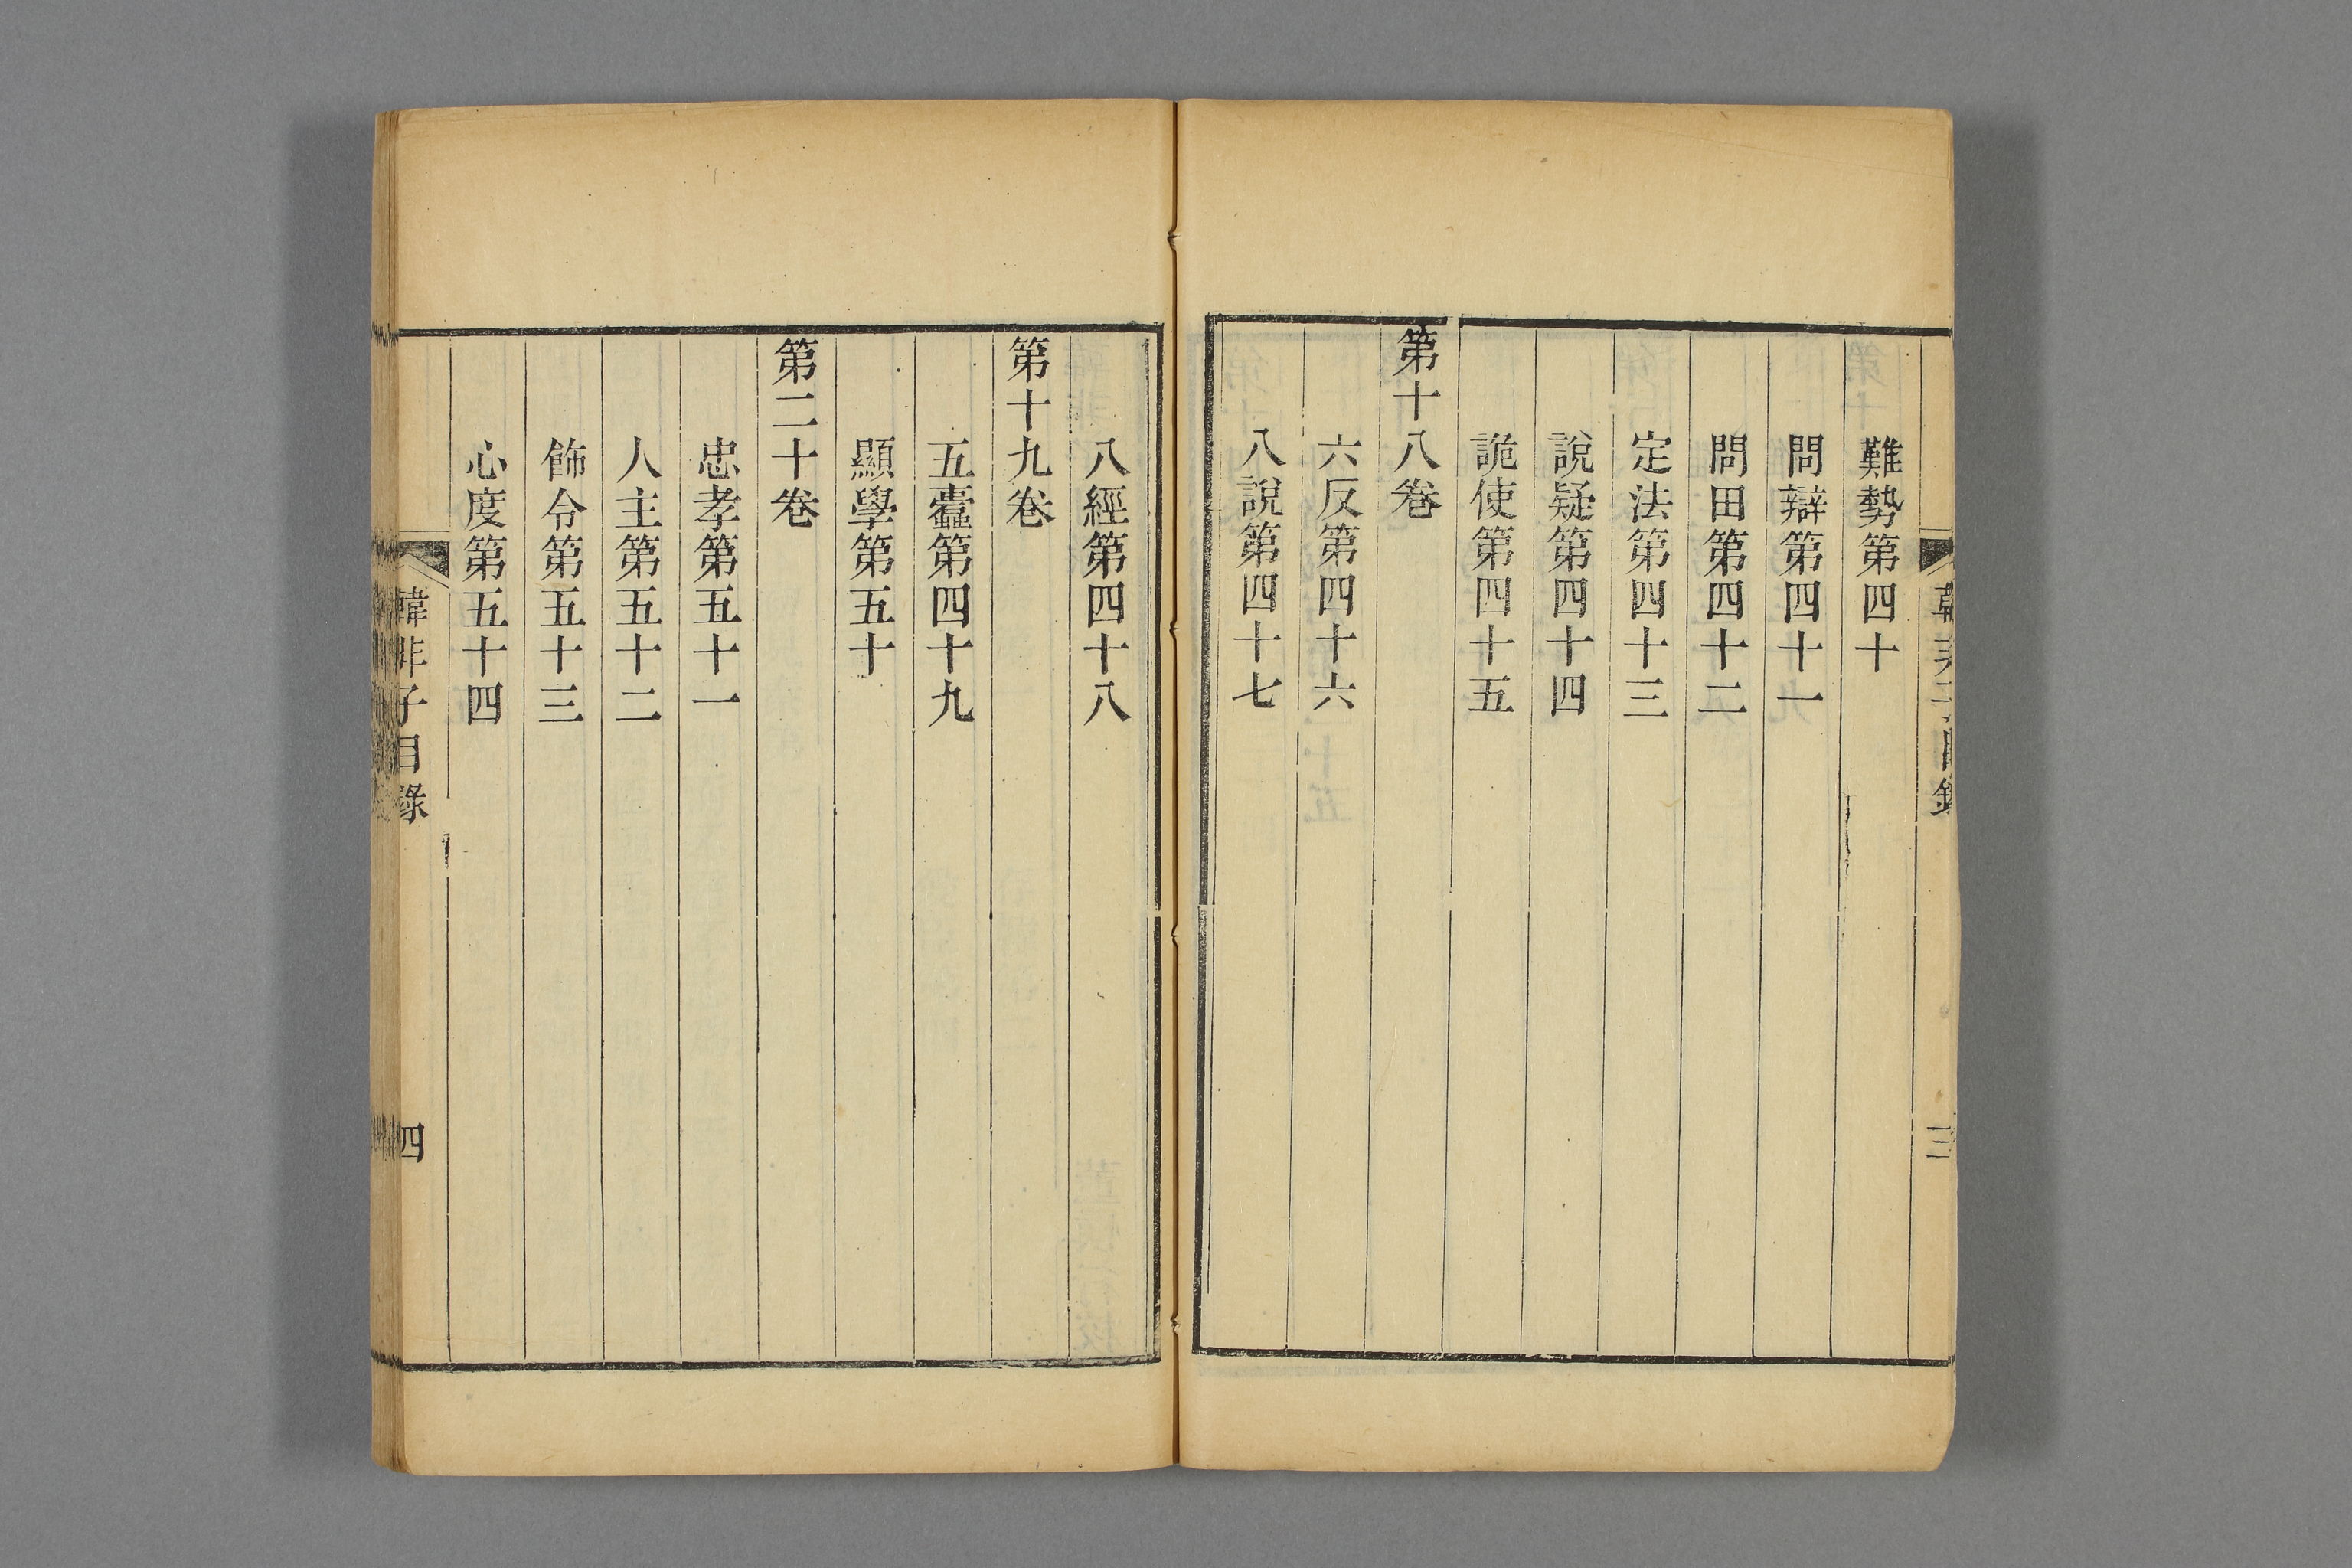 難勢第四十
問辯第四十一
問田第四十二
定法第四十三
說疑第四十四
詭使第四十五
第十八卷
六反第四十六
八說第四十七
三
八經第四十八
第十九卷
五蠹第四十九
顯學第五十
第二十卷
忠孝第五十一
人主第五十二
飾令第五十三
心度第五十四
韓非子目錄
四